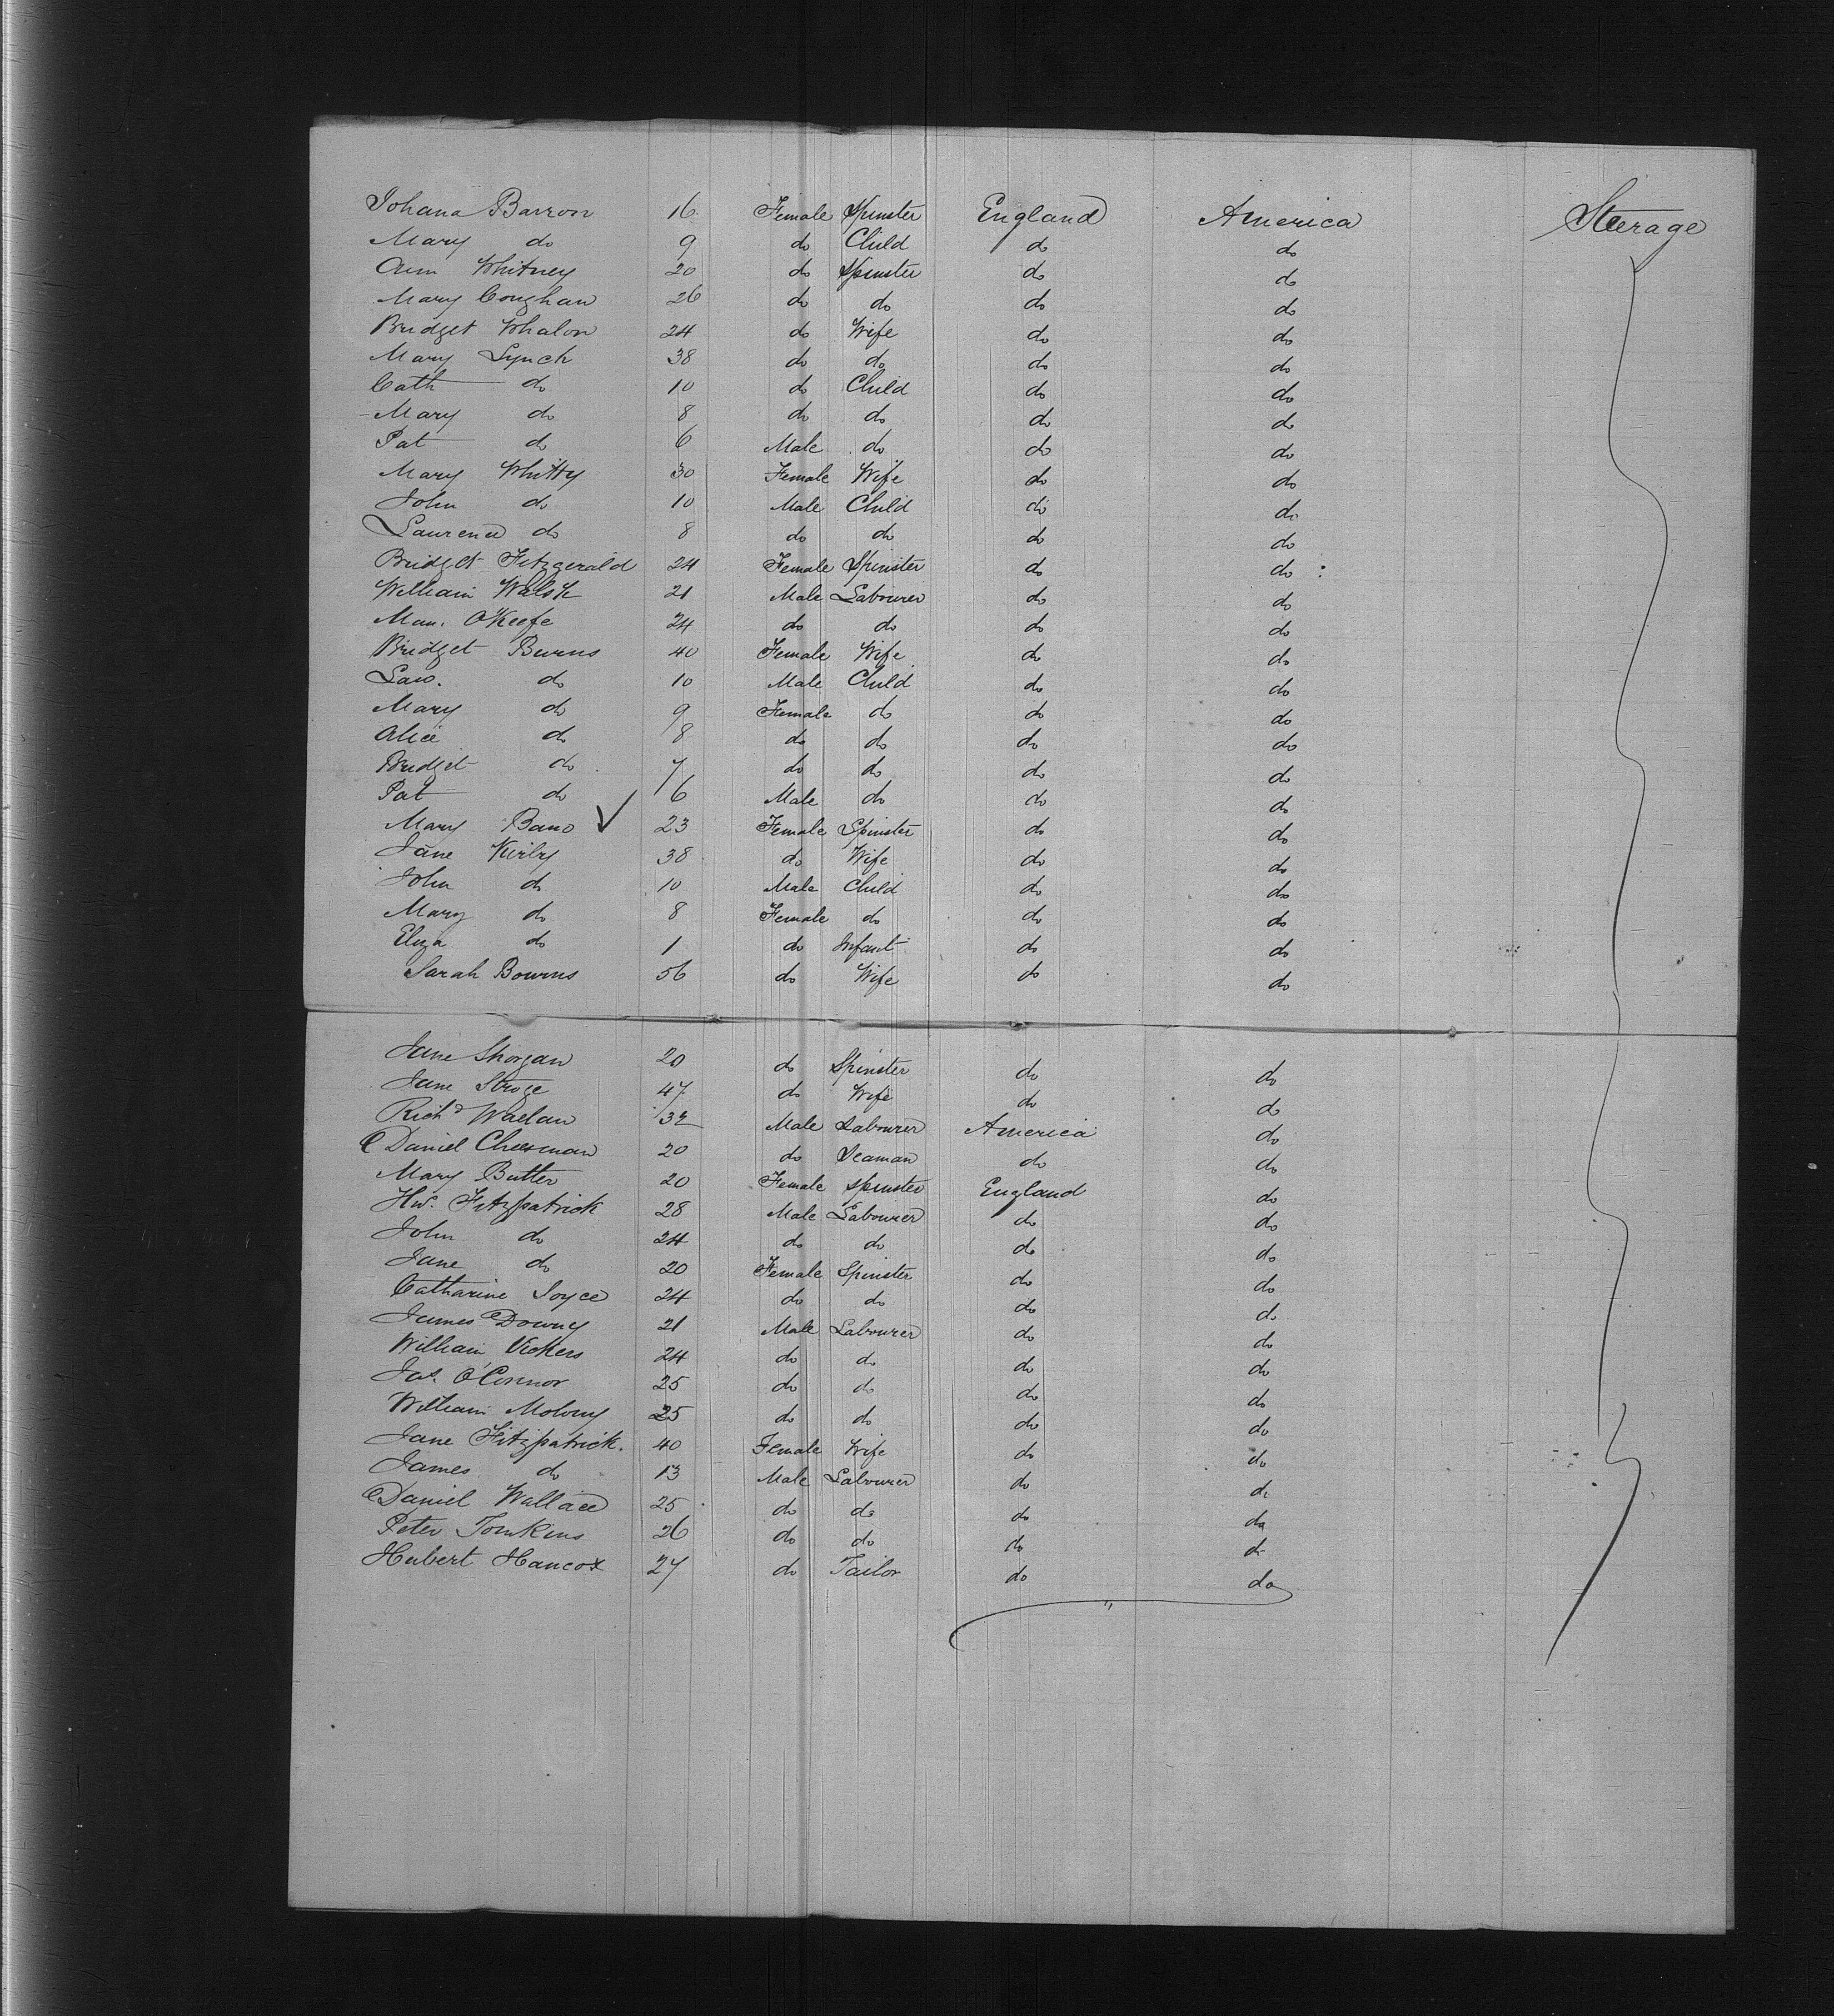 Johana Barron 16 Female Spinster England America Steerage
Mary do 9 do Child do do
Ann Whitney 20 do Spinster do do
Mary Coughan 26 do do do do
Bridget Whalon 24 do Wife do do
Mary Lynch 38 do do do do
Cath do 10 do Child do do
Mary do 8 do do do do
Pat do 6 Male do do do
Mary Whitty 30 Female Wife do do
John do 10 Male Child do do
Laurence do 8 do do do do
Bridget Fitzgerald 24 Female Spinster do do
William Walsh 21 Male Labourer do do
Mau. O'Keefe 24 do do do do
Bridget Burns 40 Female Wife do do
Law. do 10 Male Child do do
Mary do 9 Female do do do
Alice do 8 do do do do
Bridget do 7 do do do do
Pat do 6 Male do do do
Mary Bano ✓ 23 Female Spinster do do
Jane Kirby 38 do Wife do do
John do 10 Male Child do do
Mary do 8 Female do do do
Eliza do 1 do Infant do do
Sarah Bourns 56 do Wife do do
Jane 20 do Spinster do do
Jane 47 do Wife do do
Richd Waelan 32 Male Labourer America do
Daniel Cheesman 20 do Seaman do do
Mary Butler 20 Female Spinster England do
Hw. Fitzpatrick 28 Male Labourer do do
John do 24 do do do do
Jane do 20 Female Spinster do do
Catharine Joyce 24 do do do do
James Downey 21 Male Labourer do do
William Vickers 24 do do do do
Jas. O'Connor 25 do do do do
William Molony 25 do do do do
Jane Fitzpatrick. 40 Female Wife do do
James do 13 Male Labourer do do
Daniel Wallace 25 do do do do
Peter Tomkins 26 do do do do
Hubert Hancox 27 do Tailor do do